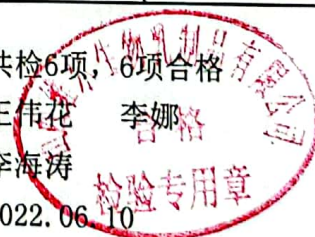 共检6项，6项合格
王伟花 李娜
李海涛
2022.06.10
生物乳制品有限公司
合格
检验专用章